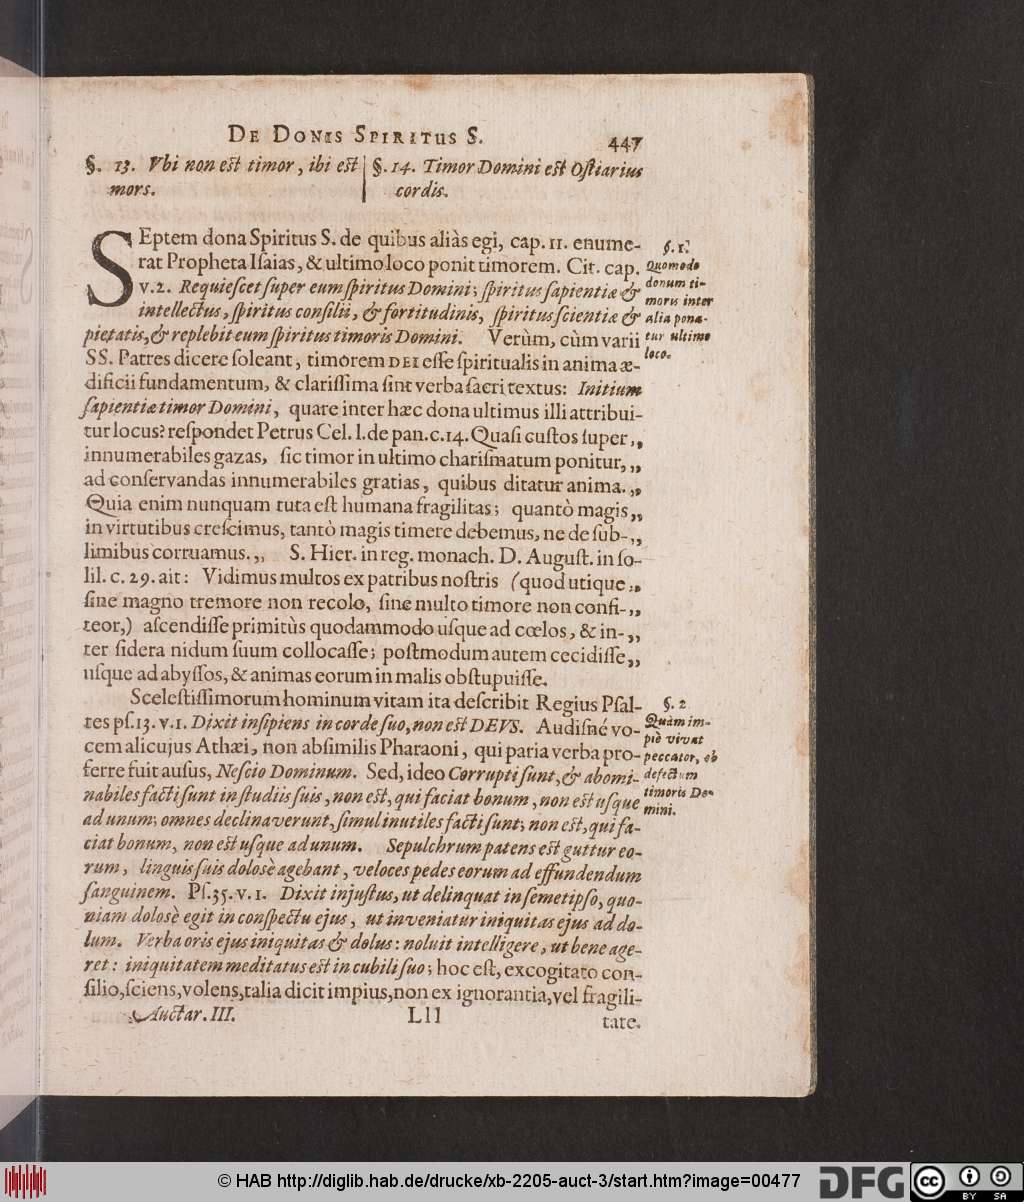 DE DONIS SPIRITUS S. 447
§. 13. Vbi non est timor, ibi est
mors.
§. 14. Timor Domini est Ostiarius
cordis.
SEptem dona Spiritus S. de quibus aliàs egi, cap. 11. enume-
rat Propheta Iſaias, & ultimo loco ponit timorem. Cit. cap.
v. 2. Requieſcet ſuper eum ſpiritus Domini; ſpiritus ſapientiæ &
intellectus, ſpiritus conſilii, & fortitudinis, ſpiritus ſcientiæ &
pietatis, & replebit eum ſpiritus timoris Domini. Verùm, cùm varii
SS. Patres dicere ſoleant, timorem DEI eſſe ſpiritualis in anima æ-
dificii fundamentum, & clariſſima ſint verba ſacri textus: Initium
ſapientiæ timor Domini, quare inter hæc dona ultimus illi attribui-
tur locus? reſpondet Petrus Cel. l. de pan. c. 14. Quaſi cuſtos ſuper „
innumerabiles gazas, ſic timor in ultimo chariſmatum ponitur, „
ad conſervandas innumerabiles gratias, quibus ditatur anima. „
Quia enim nunquam tuta eſt humana fragilitas; quantò magis „
in virtutibus creſcimus, tantò magis timere debemus, ne de ſub- „
limibus corruamus. „ S. Hier. in reg. monach. D. Auguſt. in ſo-
lil. c. 29. ait: Vidimus multos ex patribus noſtris (quod utique „
ſine magno tremore non recolo, ſine multo timore non confi- „
teor,) aſcendiſſe primitùs quodammodo uſque ad cœlos, & in- „
ter ſidera nidum ſuum collocaſſe; poſtmodum autem cecidiſſe „
uſque ad abyſſos, & animas eorum in malis obſtupuiſſe.
§. 1.
Quomodo
donum ti-
moris inter
alia pona-
tur ultimo
loco.
Sceleſtiſſimorum hominum vitam ita deſcribit Regius Pſal-
tes pſ. 13. v. 1. Dixit inſipiens in corde ſuo, non eſt DEVS. Audiſné vo-
cem alicujus Athæi, non abſimilis Pharaoni, qui paria verba pro-
ferre fuit auſus, Neſcio Dominum. Sed, ideo Corrupti ſunt, & abomi-
nabiles facti ſunt in ſtudiis ſuis, non eſt, qui faciat bonum, non eſt uſque
ad unum; omnes declinaverunt, ſimul inutiles facti ſunt; non eſt, qui fa-
ciat bonum, non eſt uſque ad unum. Sepulchrum patens eſt guttur eo-
rum, linguis ſuis dolosè agebant, veloces pedes eorum ad effundendum
ſanguinem. Pſ. 35. v. 1. Dixit injuſtus, ut delinquat in ſemetipſo, quo-
niam dolosè egit in conſpectu ejus, ut inveniatur iniquitas ejus ad do-
lum. Verba oris ejus iniquitas & dolus: noluit intelligere, ut bene age-
ret: iniquitatem meditatus eſt in cubili ſuo; hoc eſt, excogitato con-
ſilio, ſciens, volens, talia dicit impius, non ex ignorantia, vel fragili-
§. 2
Quàm im-
piè vivat
peccator, ob
defectum
timoris Do-
mini.
Auctar. III. Lll tate.
© HAB http://diglib.hab.de/drucke/xb-2205-auct-3/start.htm?image=00477
DFG
cc BY SA